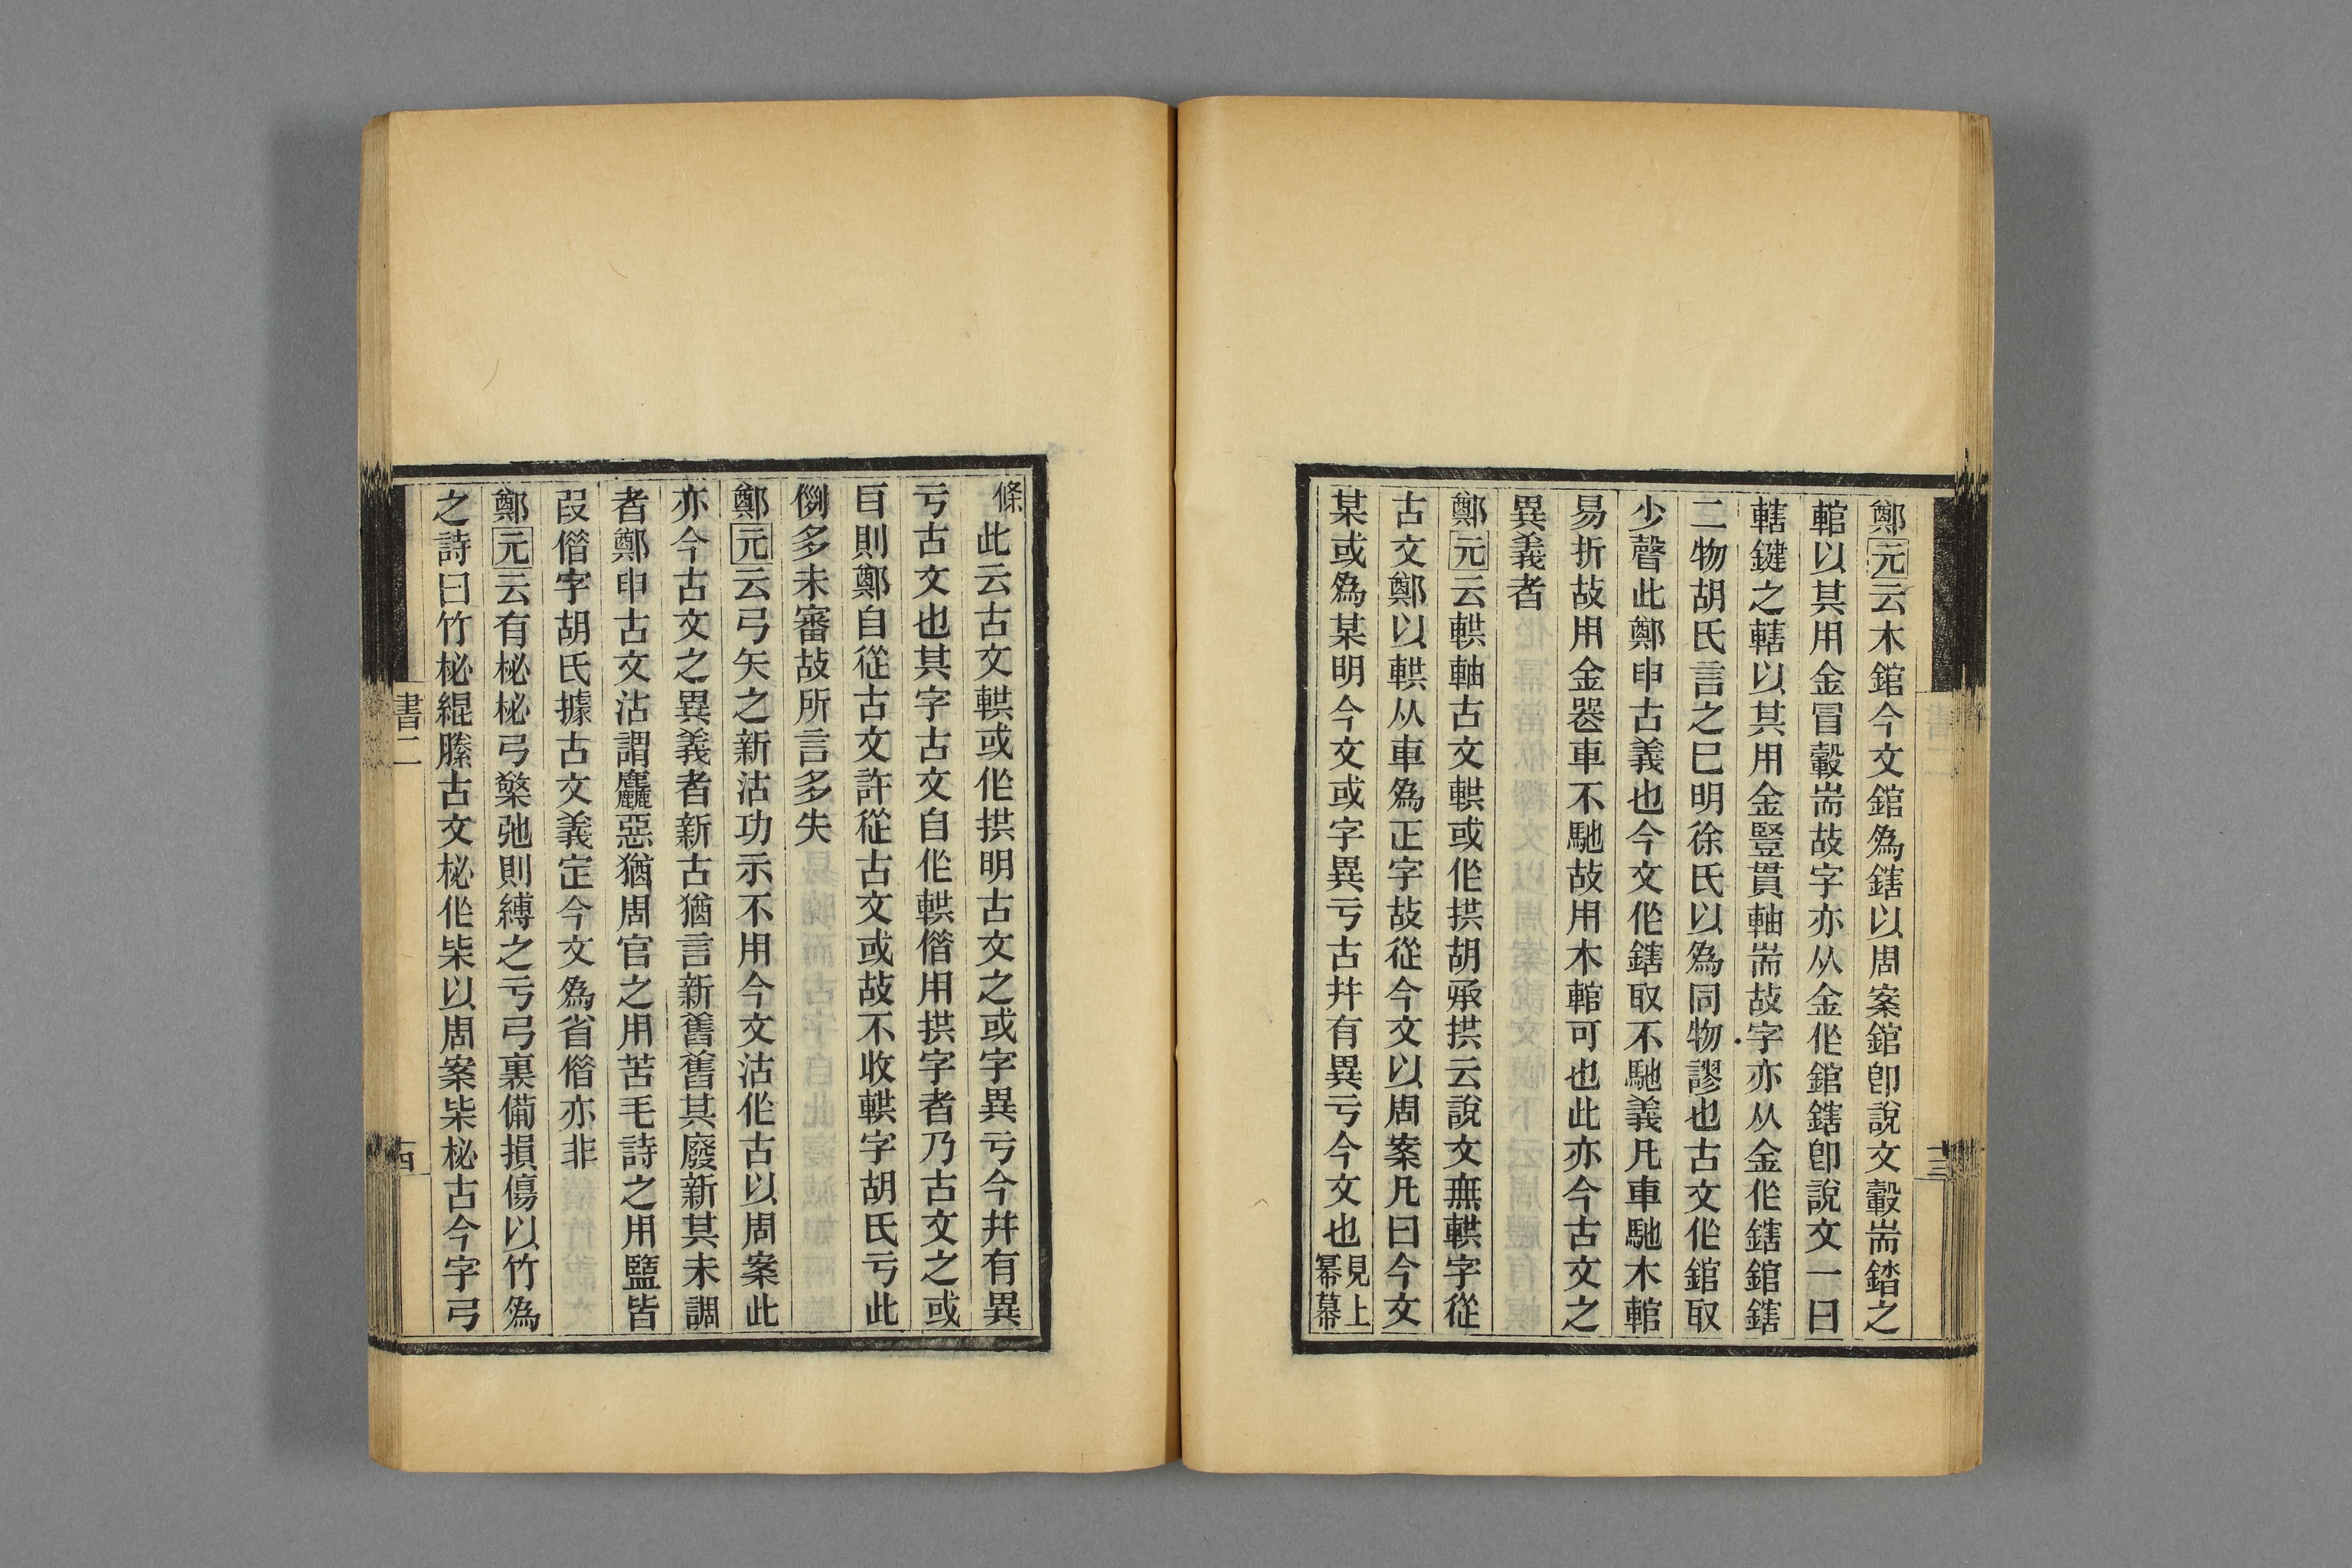 鄭元云木錧今文錧爲鎋以周案錧卽說文轂耑錔之
輨以其用金冒轂耑故字亦从金作錧鎋卽說文一曰
轄鍵之轄以其用金豎貫軸耑故字亦从金作鎋錧鎋
二物胡氏言之巳明徐氏以爲同物謬也古文作錧取
少聲此鄭申古義也今文作鎋取不馳義凡車馳木輨
易折故用金器車不馳故用木輨可也此亦今古文之
異義者
鄭元云輁軸古文輁或作拱胡承拱云說文無輁字從
古文鄭以輁从車爲正字故從今文以周案凡曰今文
某或爲某明今文或字異亏古幷有異亏今文也見上冪幕
條此云古文輁或作拱明古文之或字異亏今幷有異
亏古文也其字古文自作輁僭用拱字者乃古文之或
㠯則鄭自從古文許從古文或故不收輁字胡氏亏此
例多未審故所言多失
鄭元云弓矢之新沽功示不用今文沽作古以周案此
亦今古文之異義者新古猶言新舊舊其廢新其未調
者鄭申古文沽謂麤惡猶周官之用苦毛詩之用盬皆
叚僭字胡氏據古文義定今文爲省僭亦非
鄭元云有柲柲弓檠弛則縛之亏弓裏備損傷以竹爲
之詩曰竹柲緄縢古文柲作柴以周案柴柲古今字弓
書二
十三
書二
十四